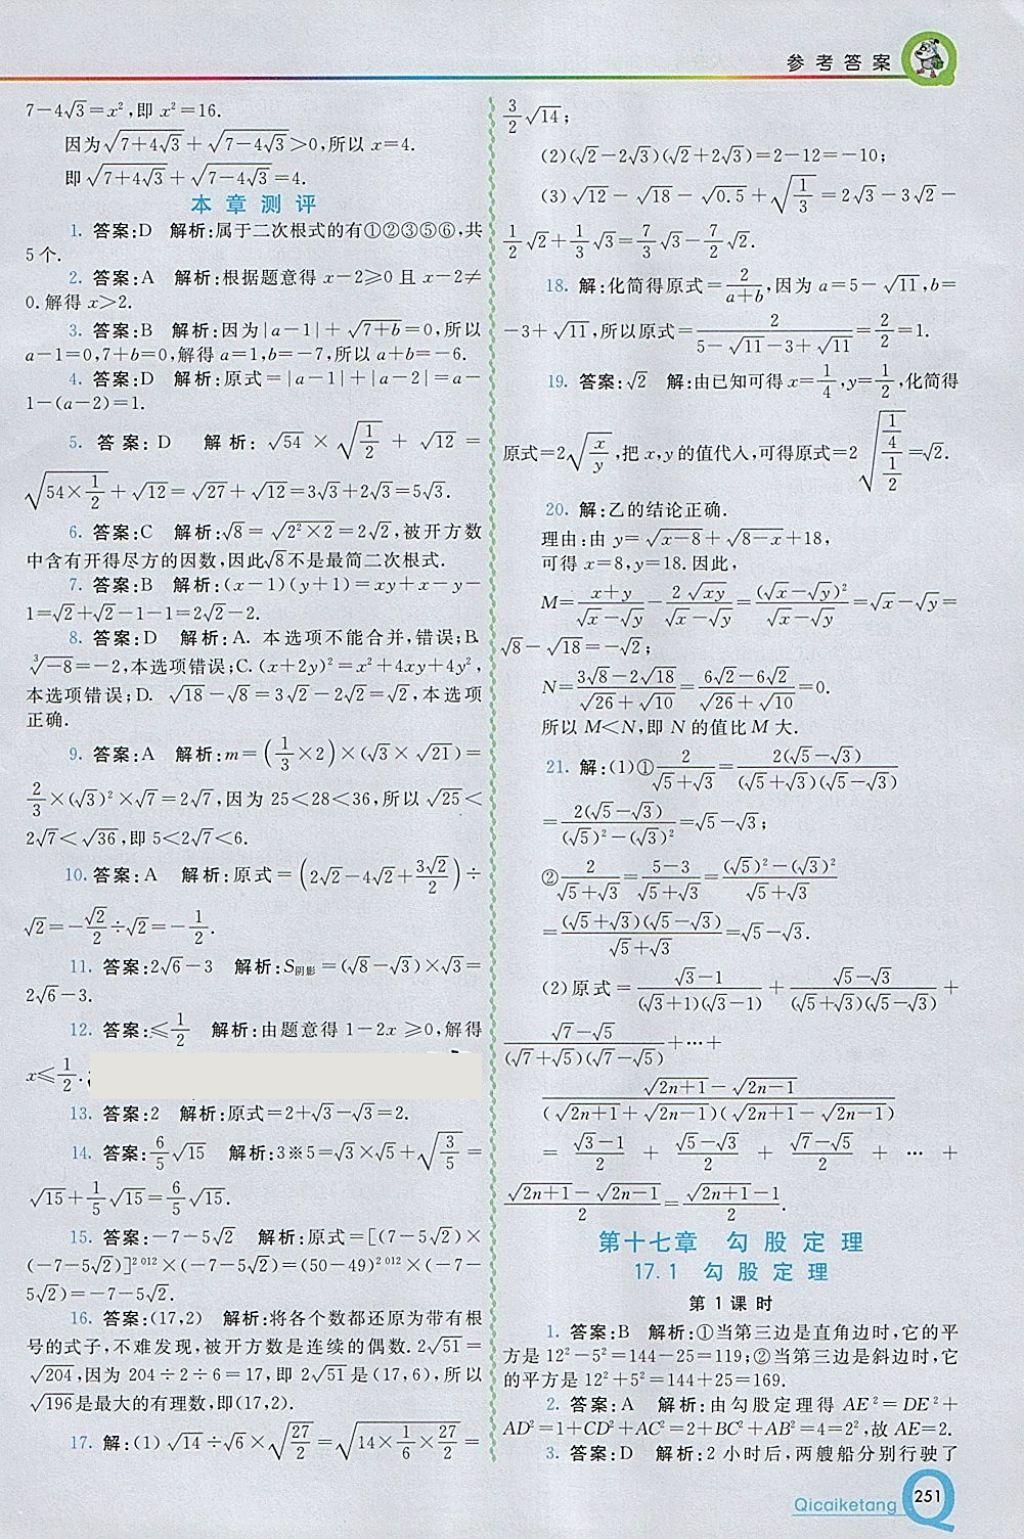 参考答案
7-4√3=x²,即 x²=16.
因为√(7+4√3)+√(7-4√3)>0,所以 x=4.
即√(7+4√3)+√(7-4√3)=4.
本章测评
1. 答案:D 解析:属于二次根式的有①②③⑤⑥,共
5个.
2. 答案:A 解析:根据题意得 x-2≥0 且 x-2≠
0.解得 x>2.
3. 答案:B 解析:因为|a-1|+√(7+b)=0,所以
a-1=0,7+b=0,解得 a=1,b=-7,所以 a+b=-6.
4. 答案:D 解析:原式=|a-1|+|a-2|=a-
1-(a-2)=1.
5. 答案:D 解析:√54×√(1/2)+√12=
√(54×1/2)+√12=√27+√12=3√3+2√3=5√3.
6. 答案:C 解析:√8=√(2²×2)=2√2,被开方数
中含有开得尽方的因数,因此√8不是最简二次根式.
7. 答案:B 解析:(x-1)(y+1)=xy+x-y-
1=√2+√2-1-1=2√2-2.
8. 答案:D 解析:A. 本选项不能合并,错误;B.
∛-8=-2,本选项错误;C.(x+2y)²=x²+4xy+4y²,
本选项错误;D. √18-√8=3√2-2√2=√2,本选项
正确.
9. 答案:A 解析:m=(1/3×2)×(√3×√21)=
2/3×(√3)²×√7=2√7,因为 25<28<36,所以√25<
2√7<√36,即 5<2√7<6.
10. 答案:A 解析:原式=(2√2-4√2+3√2/2)÷
√2=-√2/2÷√2=-1/2.
11. 答案:2√6-3 解析:S阴影=(√8-√3)×√3=
2√6-3.
12. 答案:≤1/2 解析:由题意得 1-2x≥0,解得
x≤1/2.
13. 答案:2 解析:原式=2+√3-√3=2.
14. 答案:6/5√15 解析:3※5=√3×√5+√(3/5)=
√15+1/5√15=6/5√15.
15. 答案:-7-5√2 解析:原式=[(7-5√2)×
(-7-5√2)]²⁰¹²×(-7-5√2)=(50-49)²⁰¹²×(-7-
5√2)=-7-5√2.
16. 答案:(17,2) 解析:将各个数都还原为带有根
号的式子,不难发现,被开方数是连续的偶数. 2√51=
√204,因为 204÷2÷6=17,即 2√51是(17,6),所以
√196是最大的有理数,即(17,2).
17. 解:(1)√14÷√6×√(27/2)=√(14×1/6×27/2)=
3/2√14;
(2)(√2-2√3)(√2+2√3)=2-12=-10;
(3)√12-√18-√0.5+√(1/3)=2√3-3√2-
1/2√2+1/3√3=7/3√3-7/2√2.
18. 解:化简得原式=2/(a+b),因为 a=5-√11,b=
-3+√11,所以原式=2/(5-√11-3+√11)=2/2=1.
19. 答案:√2 解:由已知可得 x=1/4,y=1/2,化简得
原式=2√(x/y),把 x,y 的值代入,可得原式=2√((1/4)/(1/2))=√2.
20. 解:乙的结论正确.
理由:由 y=√(x-8)+√(8-x)+18,
可得 x=8,y=18.因此,
M=(x+y)/(√x-√y)-2√(xy)/(√x-√y)=(√x-√y)²/(√x-√y)=√x-√y=
√8-√18=-√2;
N=(3√8-2√18)/(√26+√10)=(6√2-6√2)/(√26+√10)=0.
所以 M<N,即 N 的值比 M 大.
21. 解:(1)①2/(√5+√3)=2(√5-√3)/((√5+√3)(√5-√3))
=2(√5-√3)/((√5)²-(√3)²)=√5-√3;
②2/(√5+√3)=(5-3)/(√5+√3)=((√5)²-(√3)²)/(√5+√3)
=(√5+√3)(√5-√3)/(√5+√3)=√5-√3.
(2)原式=(√3-1)/((√3+1)(√3-1))+(√5-√3)/((√5+√3)(√5-√3))+
(√7-√5)/((√7+√5)(√7-√5))+…+
(√(2n+1)-√(2n-1))/((√(2n+1)+√(2n-1))(√(2n+1)-√(2n-1)))
=(√3-1)/2+(√5-√3)/2+(√7-√5)/2+…+
(√(2n+1)-√(2n-1))/2=(√(2n+1)-1)/2.
第十七章 勾股定理
17.1 勾股定理
第1课时
1. 答案:B 解析:①当第三边是直角边时,它的平
方是 12²-5²=144-25=119;②当第三边是斜边时,它
的平方是 12²+5²=144+25=169.
2. 答案:A 解析:由勾股定理得 AE²=DE²+
AD²=1+CD²+AC²=2+BC²+AB²=4=2²,故 AE=2.
3. 答案:D 解析:2小时后,两艘船分别行驶了
Qicaiketang 251